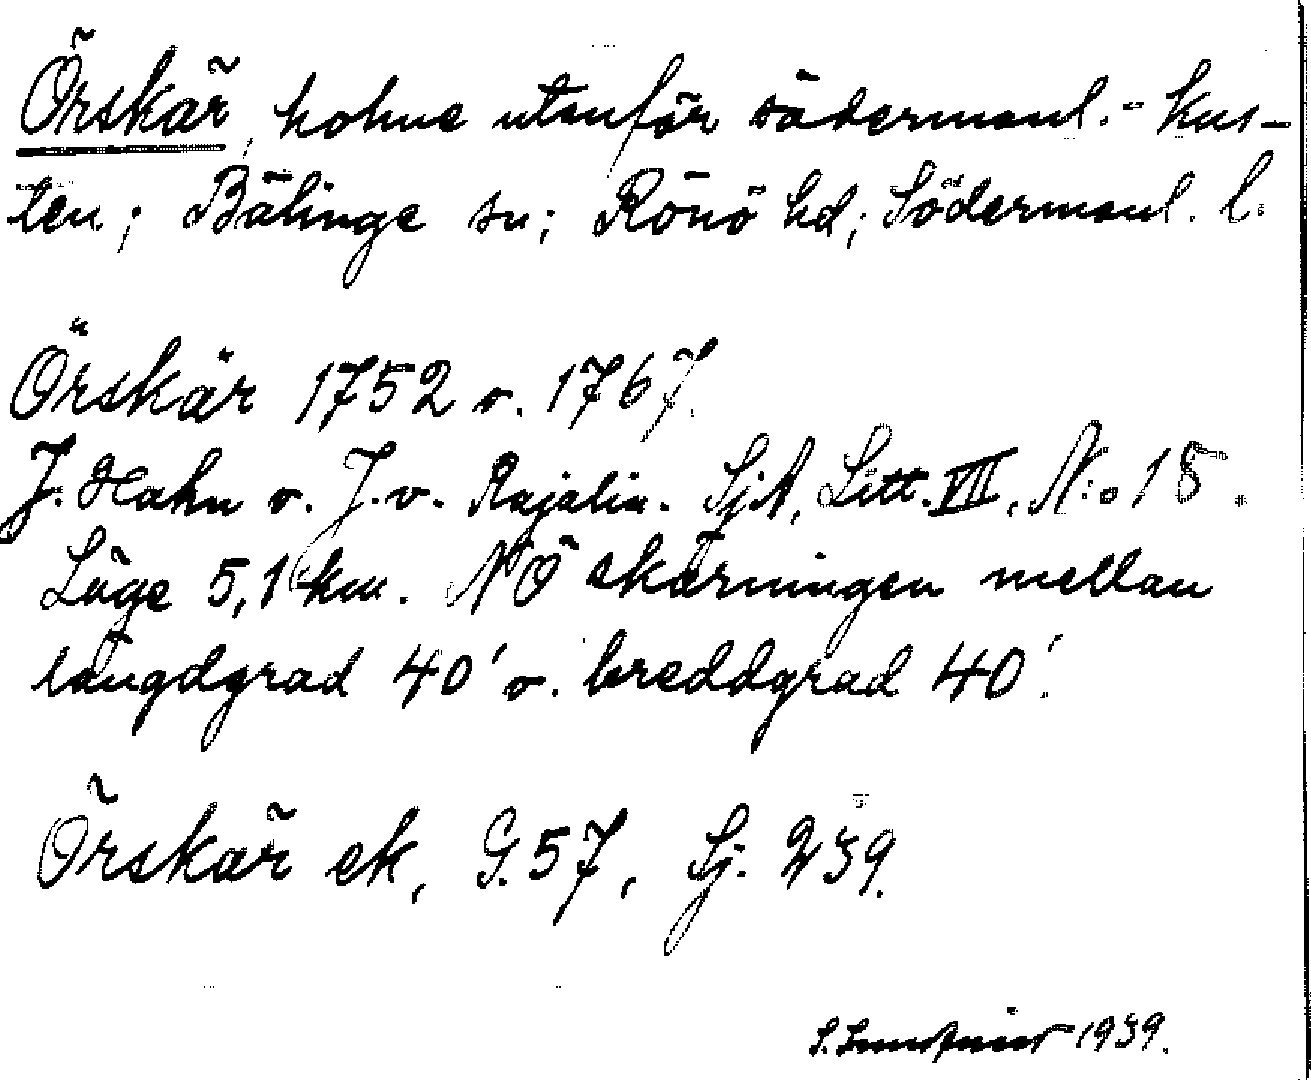 Örskär, holme utanför södermanl.- kus-
ten; Bälinge sn; Rönö hd; Södermanl. l.
Örskär 1752 o. 1767.
J. Hahn o. J. v. Rajalin. SjA, Litt. VII, N:o 15.
Läge 5,1 km. NÖ skärningen mellan
längdgrad 40' o. breddgrad 40'.
Örskär ek, G. 57, Sj. 239.
S. 1939.